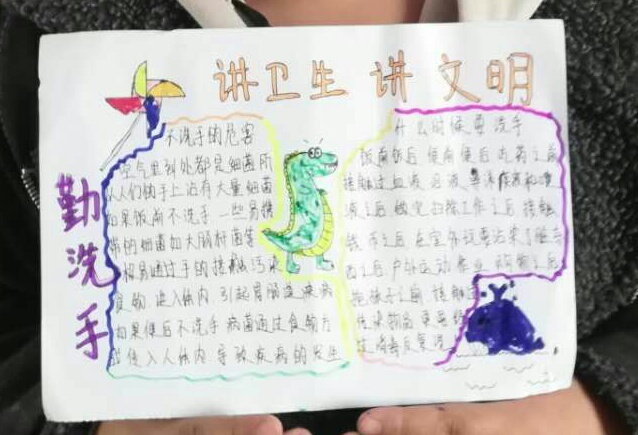 讲卫生 讲文明
勤洗手
不洗手的危害
空气里到处都是细菌所
以人们的手上沾有大量细菌
如果饭前不洗手 一些易携
带的细菌如大肠杆菌等
很易通过手的接触污染
食物 进入体内 引起胃肠道疾病
如果便后不洗手 病菌通过食物方
式传入人体内 导致疾病的发生
什么时候要洗手
饭前饭后 便前便后 吃药之前
接触过血液 泪液 鼻涕 痰液和唾
液之后 做完扫除工作之后 接触
钱币之后 在室外玩耍沾染了脏东
西之后 户外运动 作业 购物之后
抱孩子之前 接触过
传染物品
过消毒反复洗